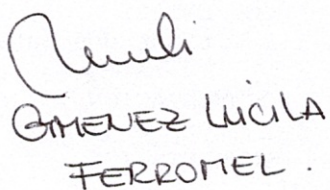 GIMENEZ LUCILA
FERROMEL.